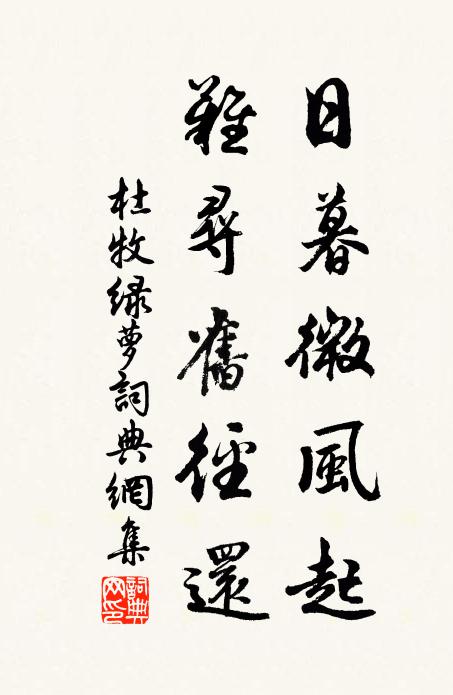 日暮微風起
難尋舊徑還
杜牧緑夢詞典網集
詞典網印